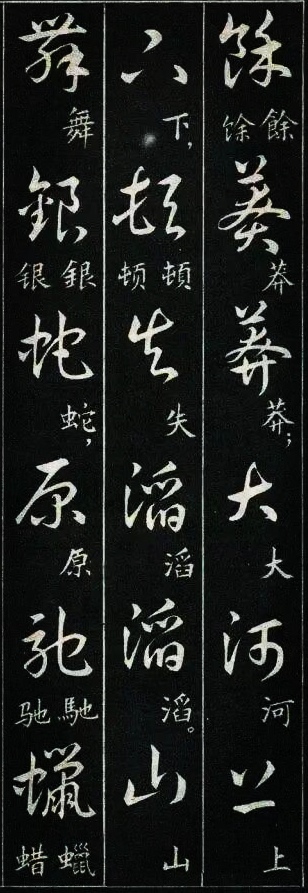 餘莽莽大河上
餘馀莽莽；大河上
下頓失滔滔山
下，頓顿失滔滔。山
舞銀蛇原馳蠟
舞銀银蛇，原馳驰蠟蜡